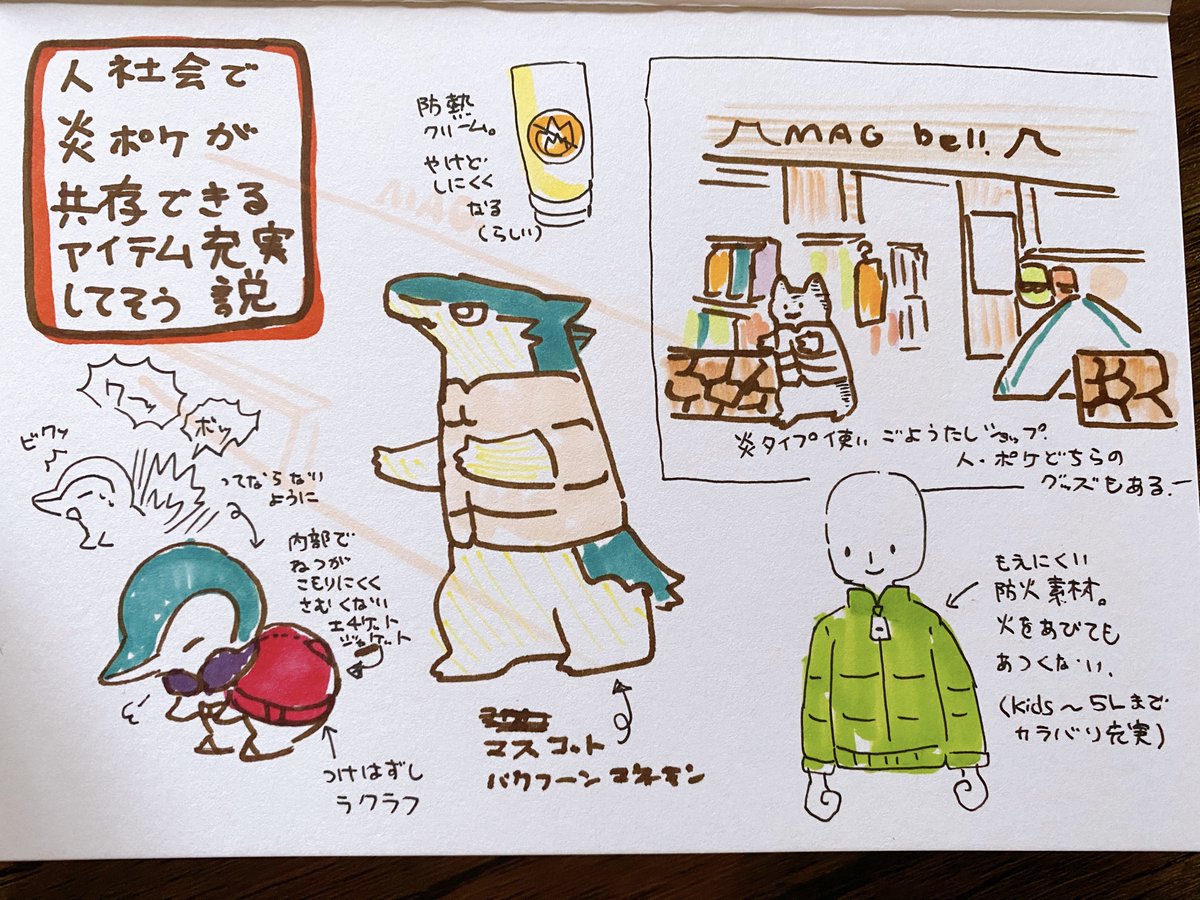 人社会で
炎ポケが
共存できる
アイテム充実
してそう 説
防熱
クリーム。
やけど
しにくく
なる
(らしい)
MAG bell
炎タイプ使い ごようたしショップ。
人・ポケどちらの
グッズもある。
ワーッ
ボッ
ビクッ
ってならない
ように
内部で
ねつが
こもりにくく
さむくない
エチケット
ジャケット
つけはずし
ラクラク
マスコット
バクフーンマネキン
もえにくい
防火素材。
火をあびても
あつくない。
(kids～5Lまで
カラバリ充実)